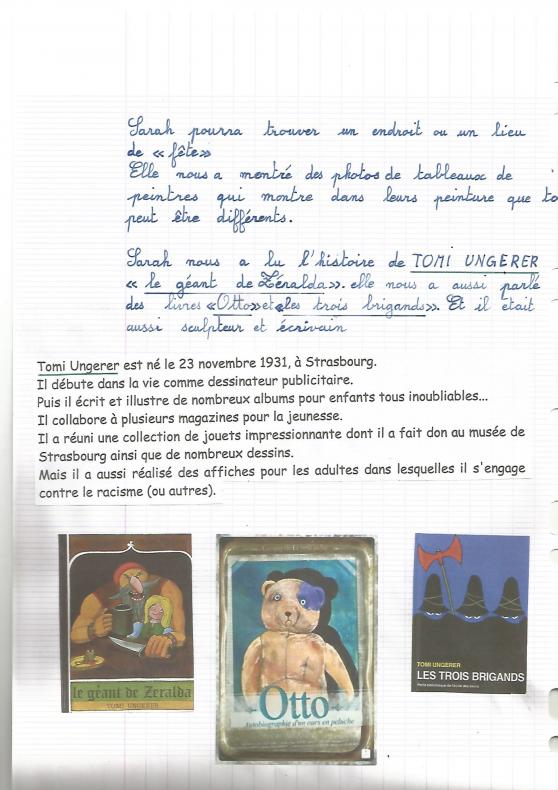 Sarah pourra trouver un endroit ou un lieu
de « fête»
Elle nous a montré des photos de tableaux de
peintres qui montre dans leurs peinture que to
peut être différents.
Sarah nous a lu l'histoire de TOMI UNGERER
« le géant de Zéralda». elle nous a aussi parlé
des livres «Otto»et«les trois brigands». Et il était
aussi sculpteur et écrivain
Tomi Ungerer est né le 23 novembre 1931, à Strasbourg.
Il débute dans la vie comme dessinateur publicitaire.
Puis il écrit et illustre de nombreux albums pour enfants tous inoubliables...
Il collabore à plusieurs magazines pour la jeunesse.
Il a réuni une collection de jouets impressionnante dont il a fait don au musée de
Strasbourg ainsi que de nombreux dessins.
Mais il a aussi réalisé des affiches pour les adultes dans lesquelles il s'engage
contre le racisme (ou autres).
le géant de Zeralda
TOMI UNGERER
Otto
Autobiographie d'un ours en peluche
TOMI UNGERER
LES TROIS BRIGANDS